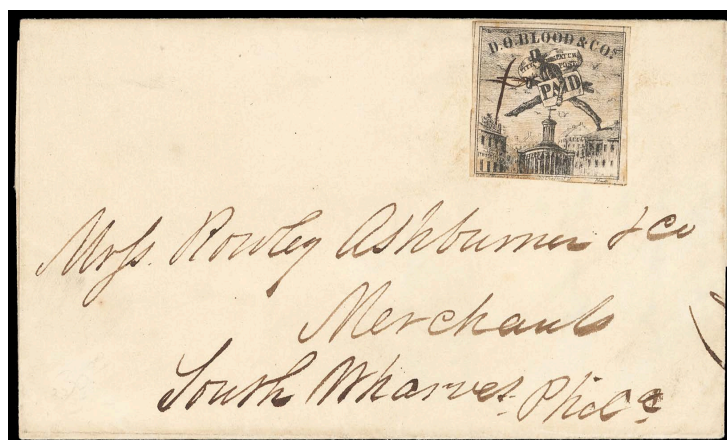 D.O. BLOOD & Co's
CITY DESPATCH
POST
PAID
Messs. Rowley Ashburner & Co
Merchants
South Wharves Philda